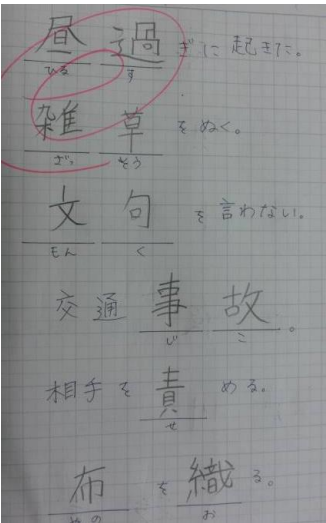 昼過ぎに起きた。
ひる す
雑草をぬく。
ざっ そう
文句を言わない。
もん く
交通事故。
じ こ
相手を責める。
せ
布を織る。
ぬの お